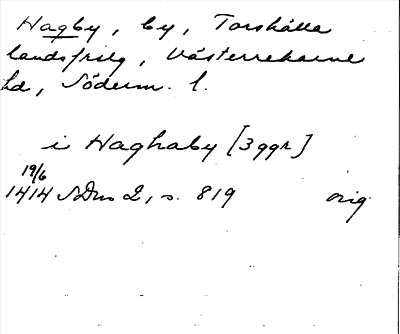 Hagby, by, Torshälla
landsfrsg, Västerrekarne
hd, Söderm. l.
i Haghaby [3 ggr]
19/6
1414 SDns 2, s. 819 orig